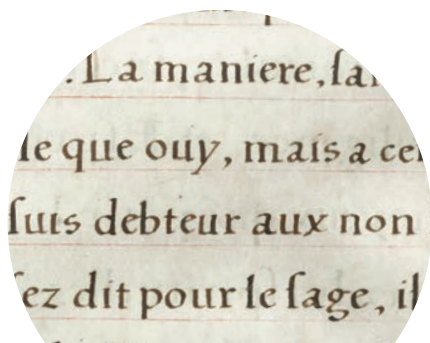 . La maniere, ſa
que ouy, mais a
ſuis debteur aux non
ſez dit pour le ſage, il